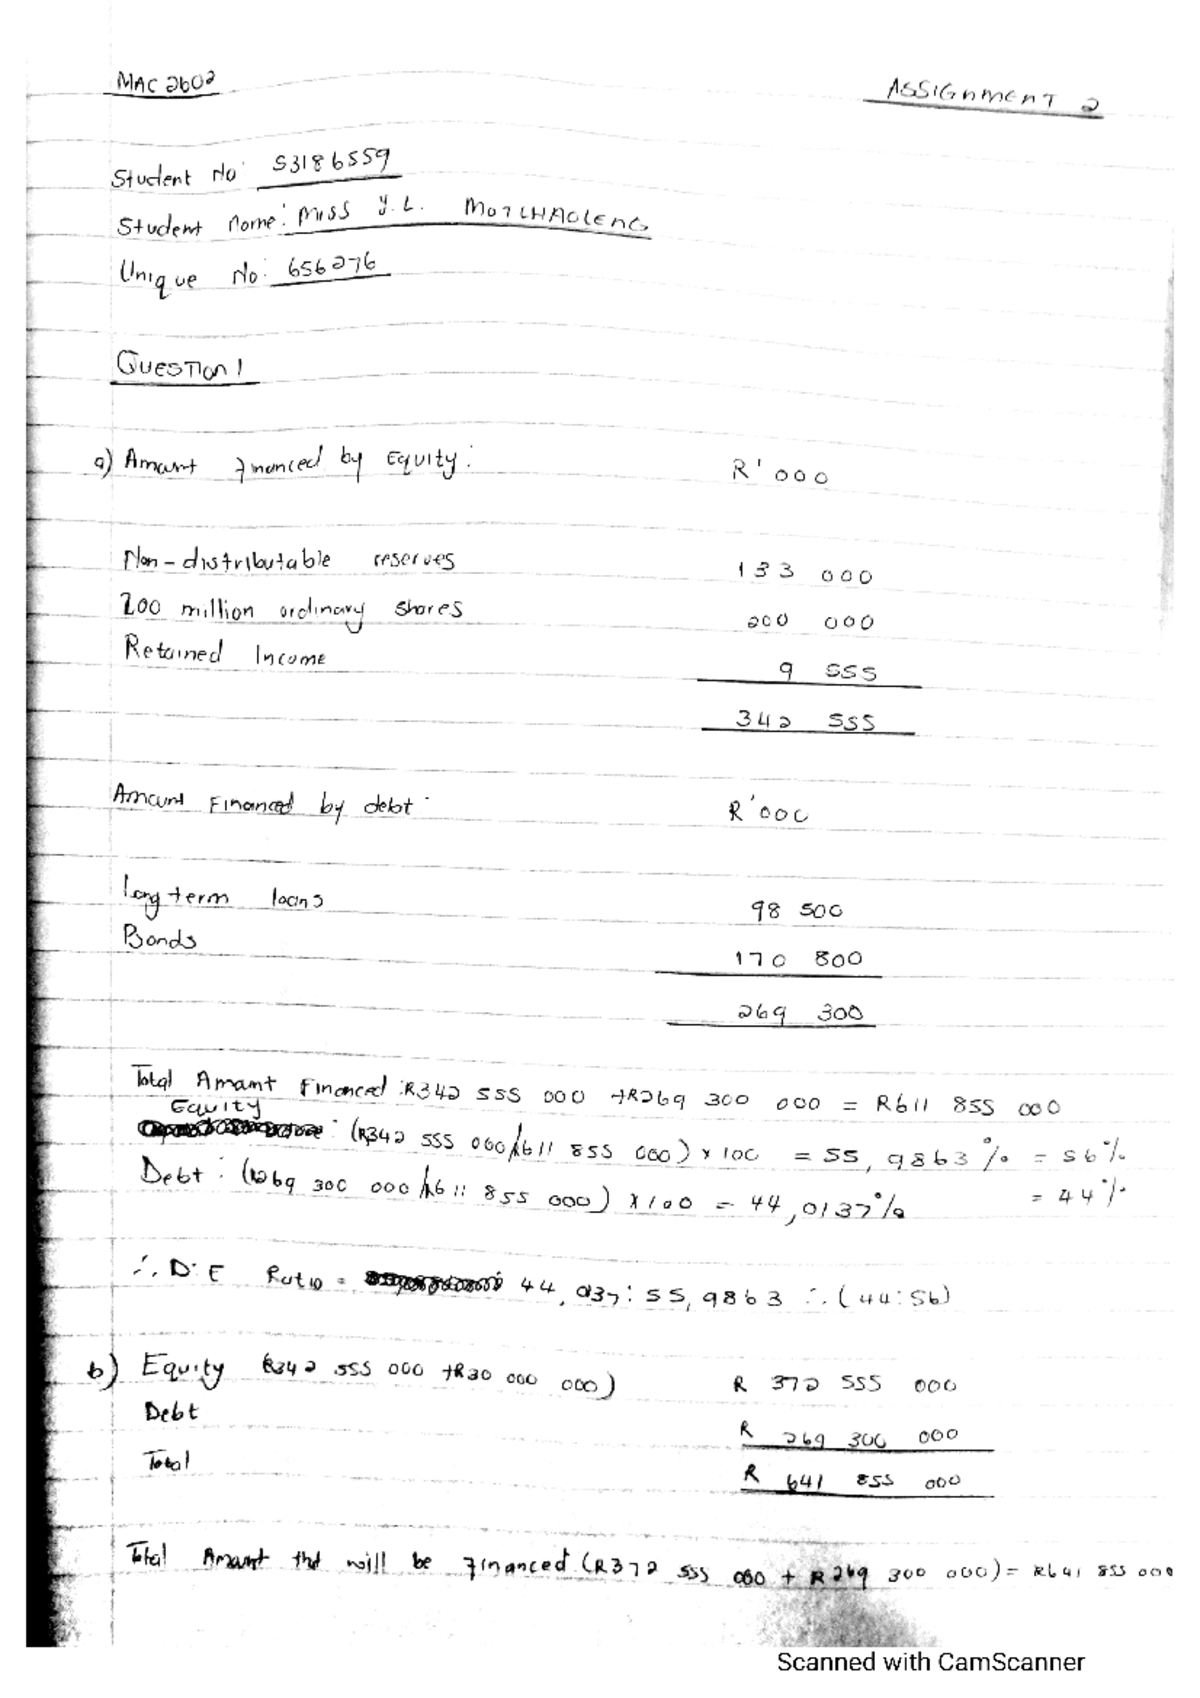 MAC 2602
ASSIGNMENT 2
Student No: 53186559
Student Name: Miss Y.L. MOTLHAOLENG
Unique No: 656276
QUESTION 1
a) Amount financed by Equity: R'000
Non-distributable reserves 133 000
200 million ordinary shares 200 000
Retained Income 9 555
342 555
Amount Financed by debt: R'000
Long term loans 98 500
Bonds 170 800
269 300
Total Amount Financed: R342 555 000 + R269 300 000 = R611 855 000
Equity
: (R342 555 000/R611 855 000) x 100 = 55,9863% = 56%
Debt: (R269 300 000/R611 855 000) x 100 = 44,0137% = 44%
∴ D:E Ratio = 44,037: 55,9863 ∴ (44:56)
b) Equity (R342 555 000 + R30 000 000) R 372 555 000
Debt R 269 300 000
Total R 641 855 000
Total Amount that will be financed (R372 555 000 + R269 300 000) = R641 855 000
Scanned with CamScanner